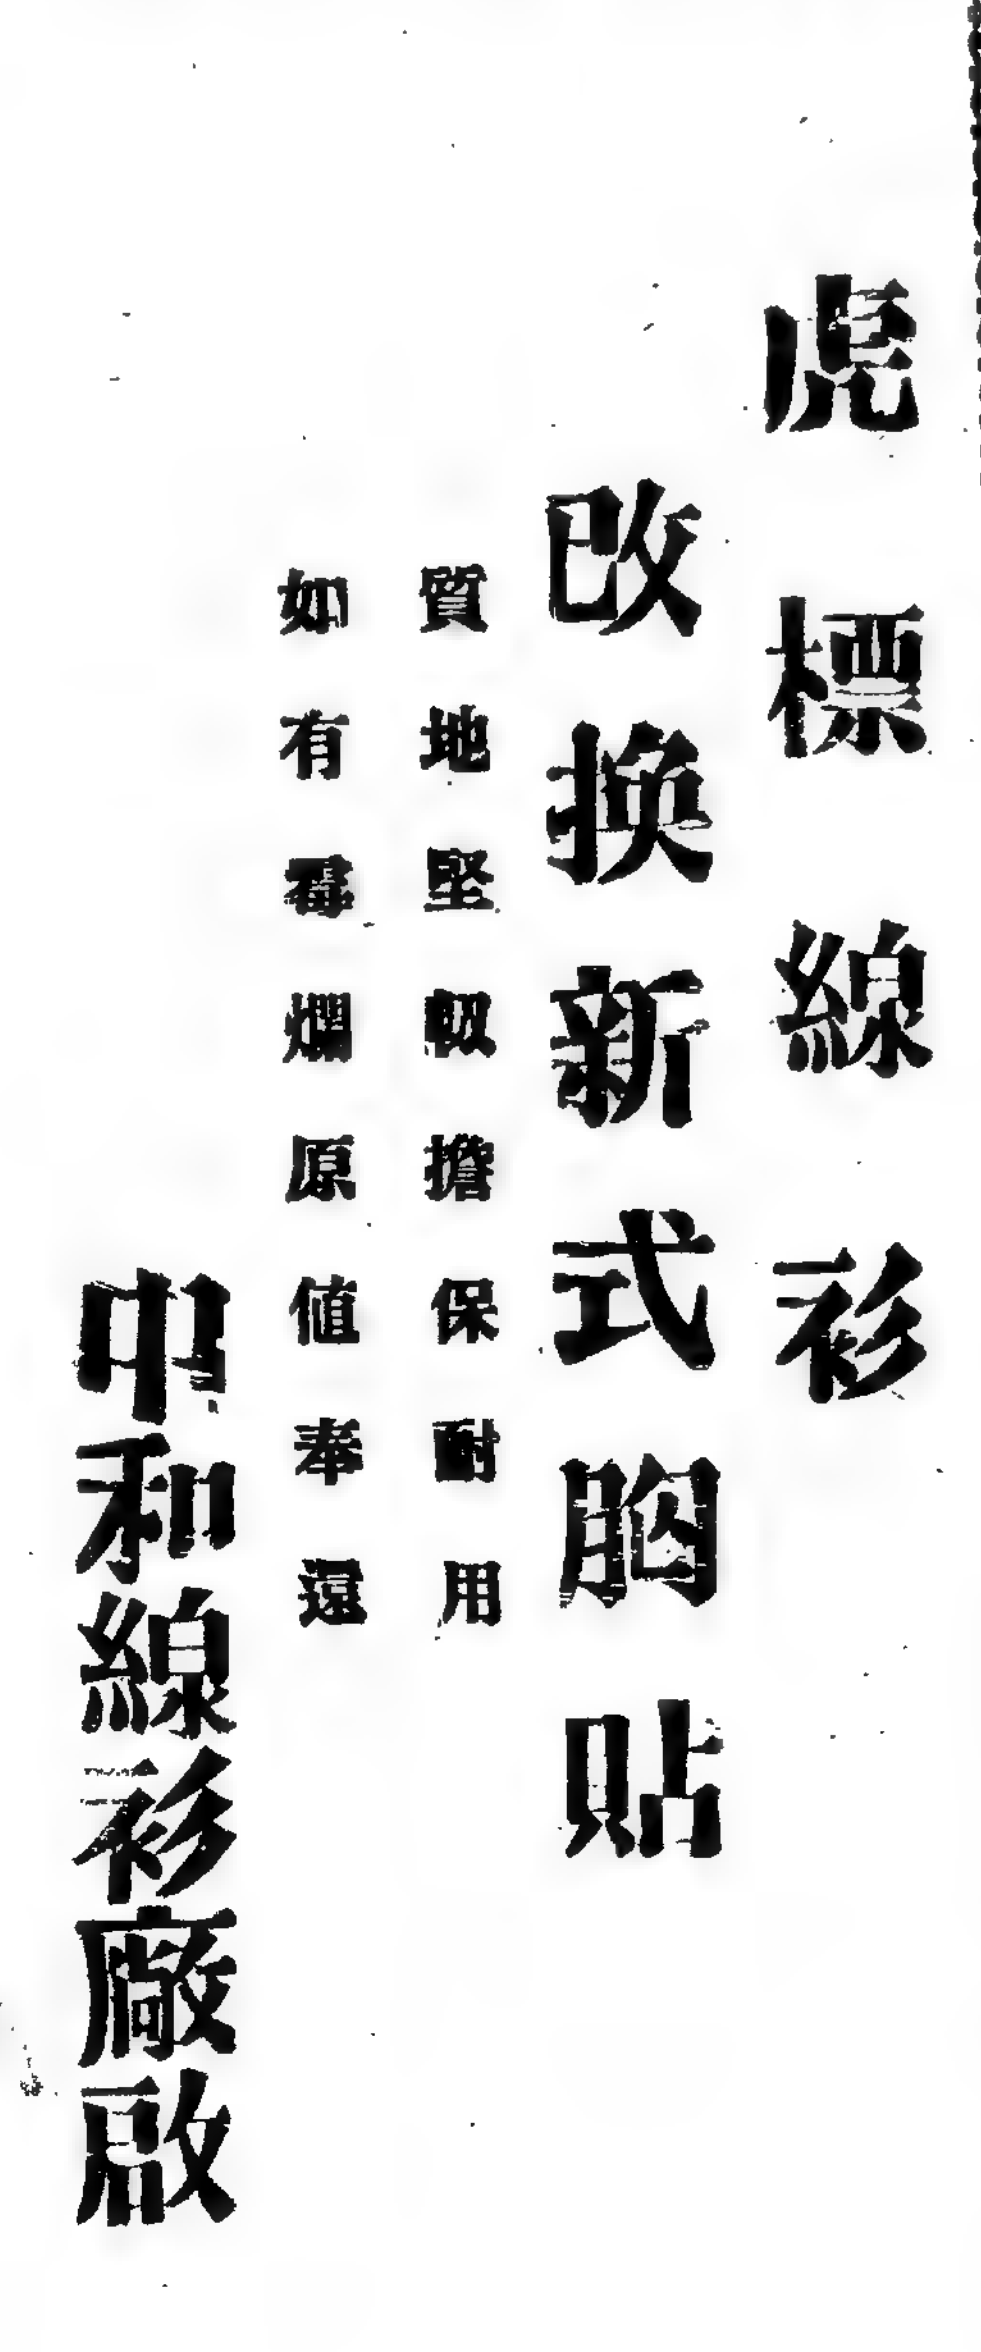 虎標線衫
改換新式胸貼
質地堅靱擔保耐用
如有霉爛原値奉還
中和線衫廠啟